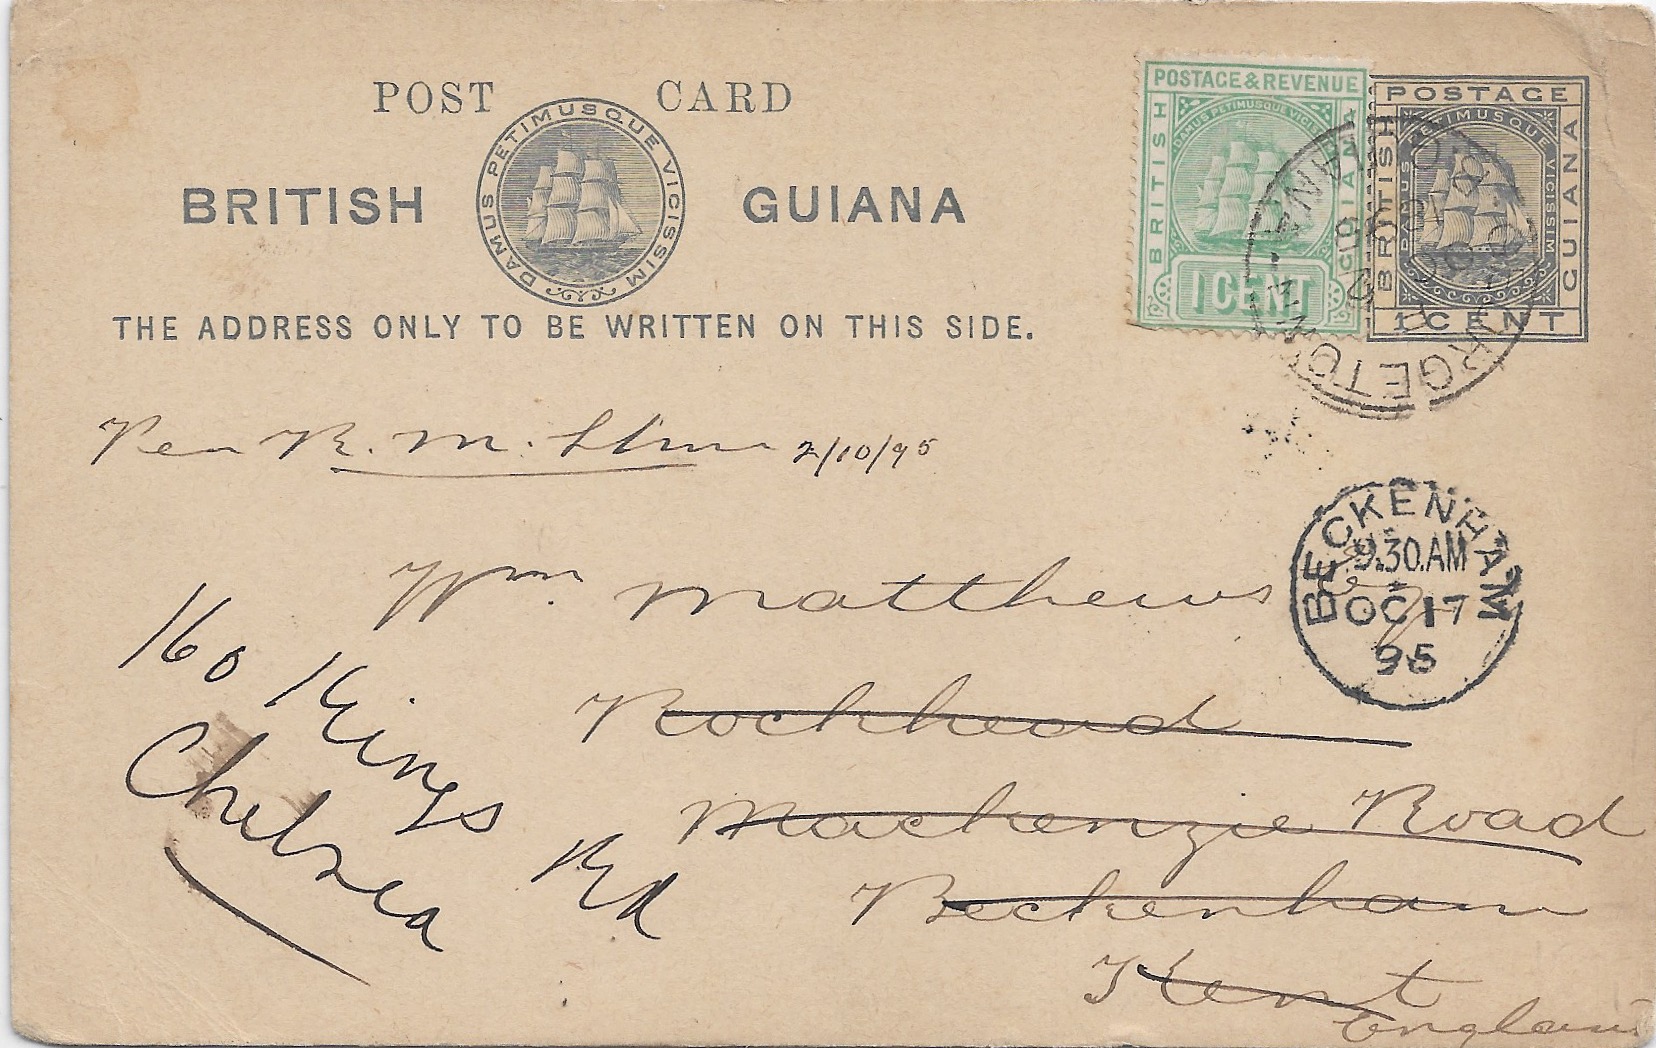 POST CARD
BRITISH GUIANA
DAMUS PETIMUSQUE VICISSIM
THE ADDRESS ONLY TO BE WRITTEN ON THIS SIDE.
POSTAGE & REVENUE
BRITISH
GUIANA
DAMUS PETIMUSQUE VICIS
1 CENT
POSTAGE
BRITISH
GUIANA
DAMUS PETIMUSQUE VICISSIM
1 CENT
R. M. 2/10/95
BECKENHAM
9.30.AM
OC 17
95
Wm Matthews
Rockhead
Mackenzie Road
Beckenham
Kent
England
160 Kings Rd
Chelsea